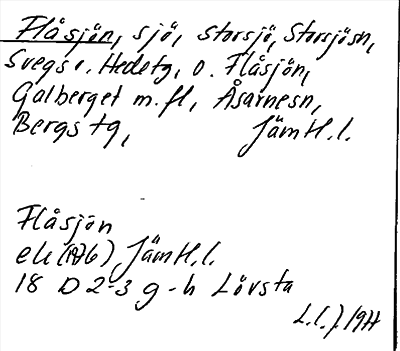 Flåsjön, sjö, storsjö, Storsjösn,
Svegs o. Hedetg, o. Flåsjön,
Galberget m.fl, Åsarnesn,
Bergs tg, Jämtl.l.
Flåsjön
ek (1976) Jämtl.l.
18 D 2-3 g-h Lövsta
L.L.J. 1977